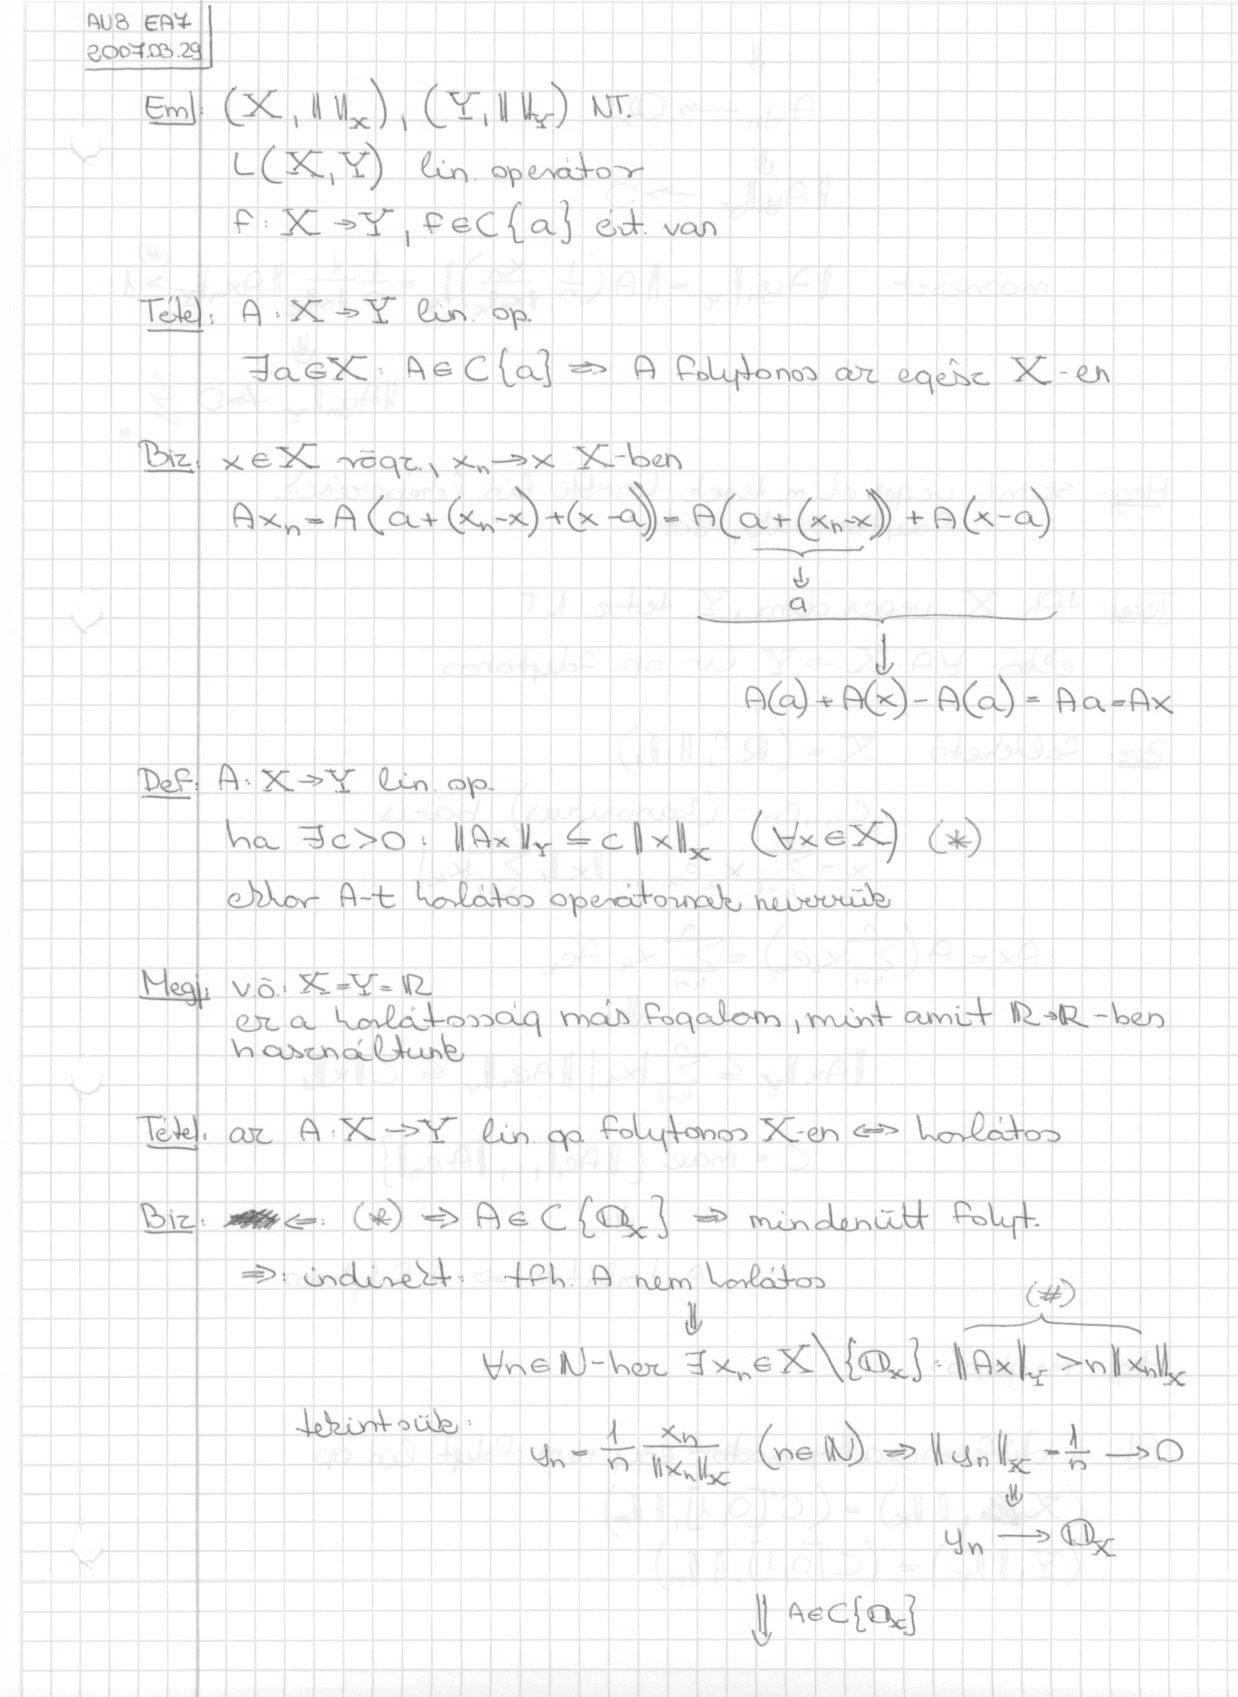 AU8 EA7
2007.03.29
Eml: (X, ‖ ‖_X), (Y, ‖ ‖_Y) NT.
L(X,Y) lin. operátor
f: X → Y, f ∈ C{a} ért. van
Tétel: A: X → Y lin. op.
∃a∈X: A ∈ C{a} ⇒ A folytonos az egész X-en
Biz: x ∈ X rögz., x_n → x X-ben
Ax_n = A(a+(x_n-x)+(x-a)) = A(a+(x_n-x)) + A(x-a)
↓
a
↓
A(a) + A(x) - A(a) = Aa = Ax
Def: A: X → Y lin. op.
ha ∃c>0: ‖Ax‖_Y ≤ c‖x‖_X (∀x∈X) (*)
ekkor A-t korlátos operátornak nevezzük
Megj: v.ö. X=Y=ℝ
ez a korlátosság más fogalom, mint amit ℝ→ℝ-ben
használtunk
Tétel: az A: X → Y lin. op. folytonos X-en ⇔ korlátos
Biz: ⇐: (*) ⇒ A ∈ C{0_X} ⇒ mindenütt folyt.
⇒: indirekt: tfh. A nem korlátos
(#)
⇓
∀n∈ℕ-hez ∃x_n∈X\{0_X}: ‖Ax‖_Y > n‖x_n‖_X
tekintsük:
y_n = 1/n x_n/‖x_n‖_X (n∈ℕ) ⇒ ‖y_n‖_X = 1/n → 0
⇓
y_n → 0_X
⇓ A∈C{0_X}